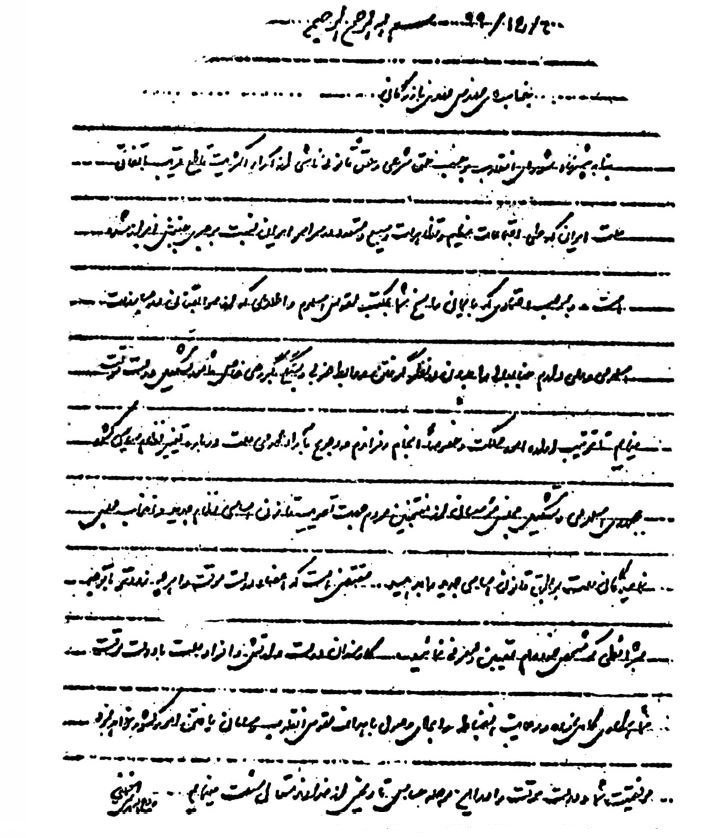 بسم الله الرحمن الرحیم ۹۹/۲/۶
جناب آقای مهندس مهدی بازرگان
بنا به پیشنهاد شورای انقلاب بر حسب حق شرعی و حق قانونی ناشی از آراء اکثریت قاطع قریب باتفاق
ملت ایران که طی اجتماعات عظیم و تظاهرات وسیع و متعدد در سراسر ایران نسبت به رهبری جنبش ابراز شده
است و بموجب اعتمادی که بایمان راسخ شما بمکتب مقدس اسلام و اطلاعی که از سوابقتان در مبارزات
اسلامی و ملی دارم جنابعالی را بدون در نظر گرفتن روابط حزبی و بستگی بگروهی خاص مأمور تشکیل دولت موقت
مینمایم تا ترتیب اداره امور مملکت و خصوصاً انجام رفراندم و رجوع بآراء عمومی ملت درباره تغییر نظام سیاسی کشور
بجمهوری اسلامی و تشکیل مجلس مؤسسان از منتخبین مردم جهت تصویب قانون اساسی نظام جدید و انتخاب مجلس
نمایندگان ملت بر طبق قانون اساسی جدید را بدهید. مقتضی است که اعضاء دولت موقت را هر چه زودتر با توجه
بشرائطی که مشخص نموده‌ام تعیین و معرفی نمائید. کارمندان دولت و ارتش و افراد ملت با دولت موقت
شما همکاری کامل نموده و رعایت انضباط را برای وصول باهداف مقدس انقلاب و سامان یافتن امور کشور خواهند نمود
موفقیت شما و دولت موقت را در این مرحله حساس تاریخی از خداوند متعال مسئلت مینمایم.
روح‌الله الموسوی الخمینی